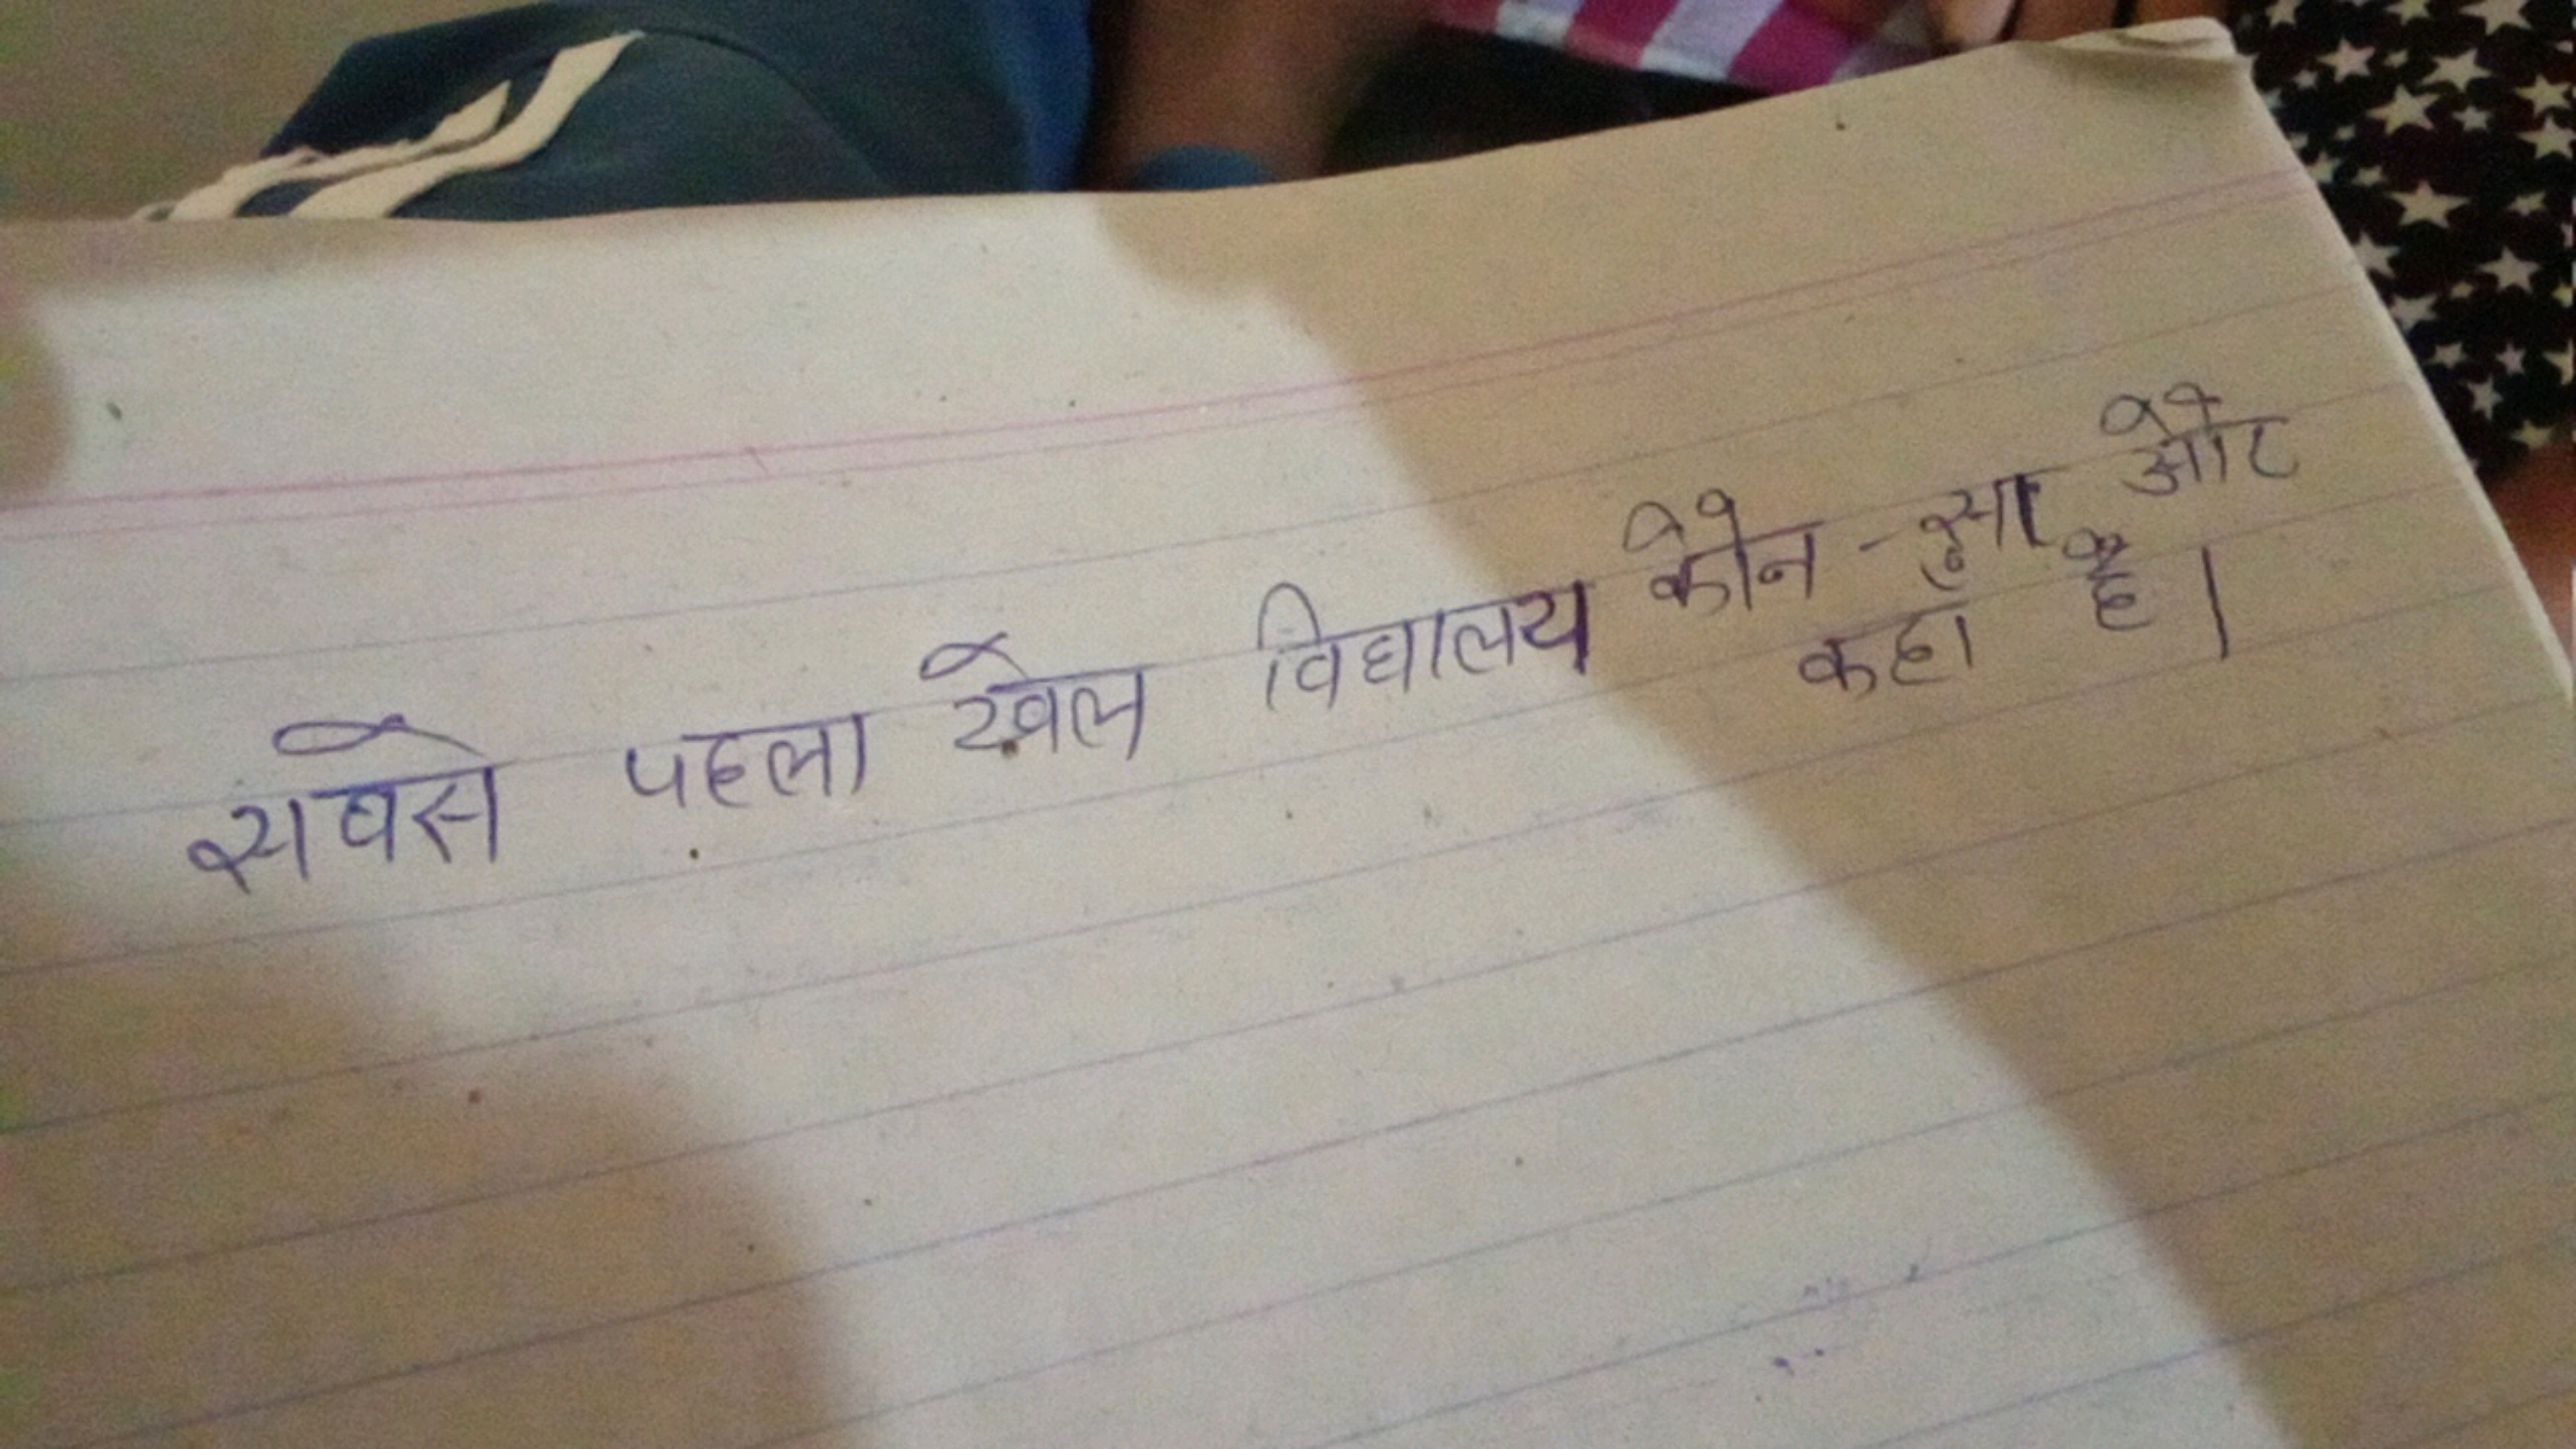 सबसे पहला खेल विघालय कौन - सा और
कहाँ है।